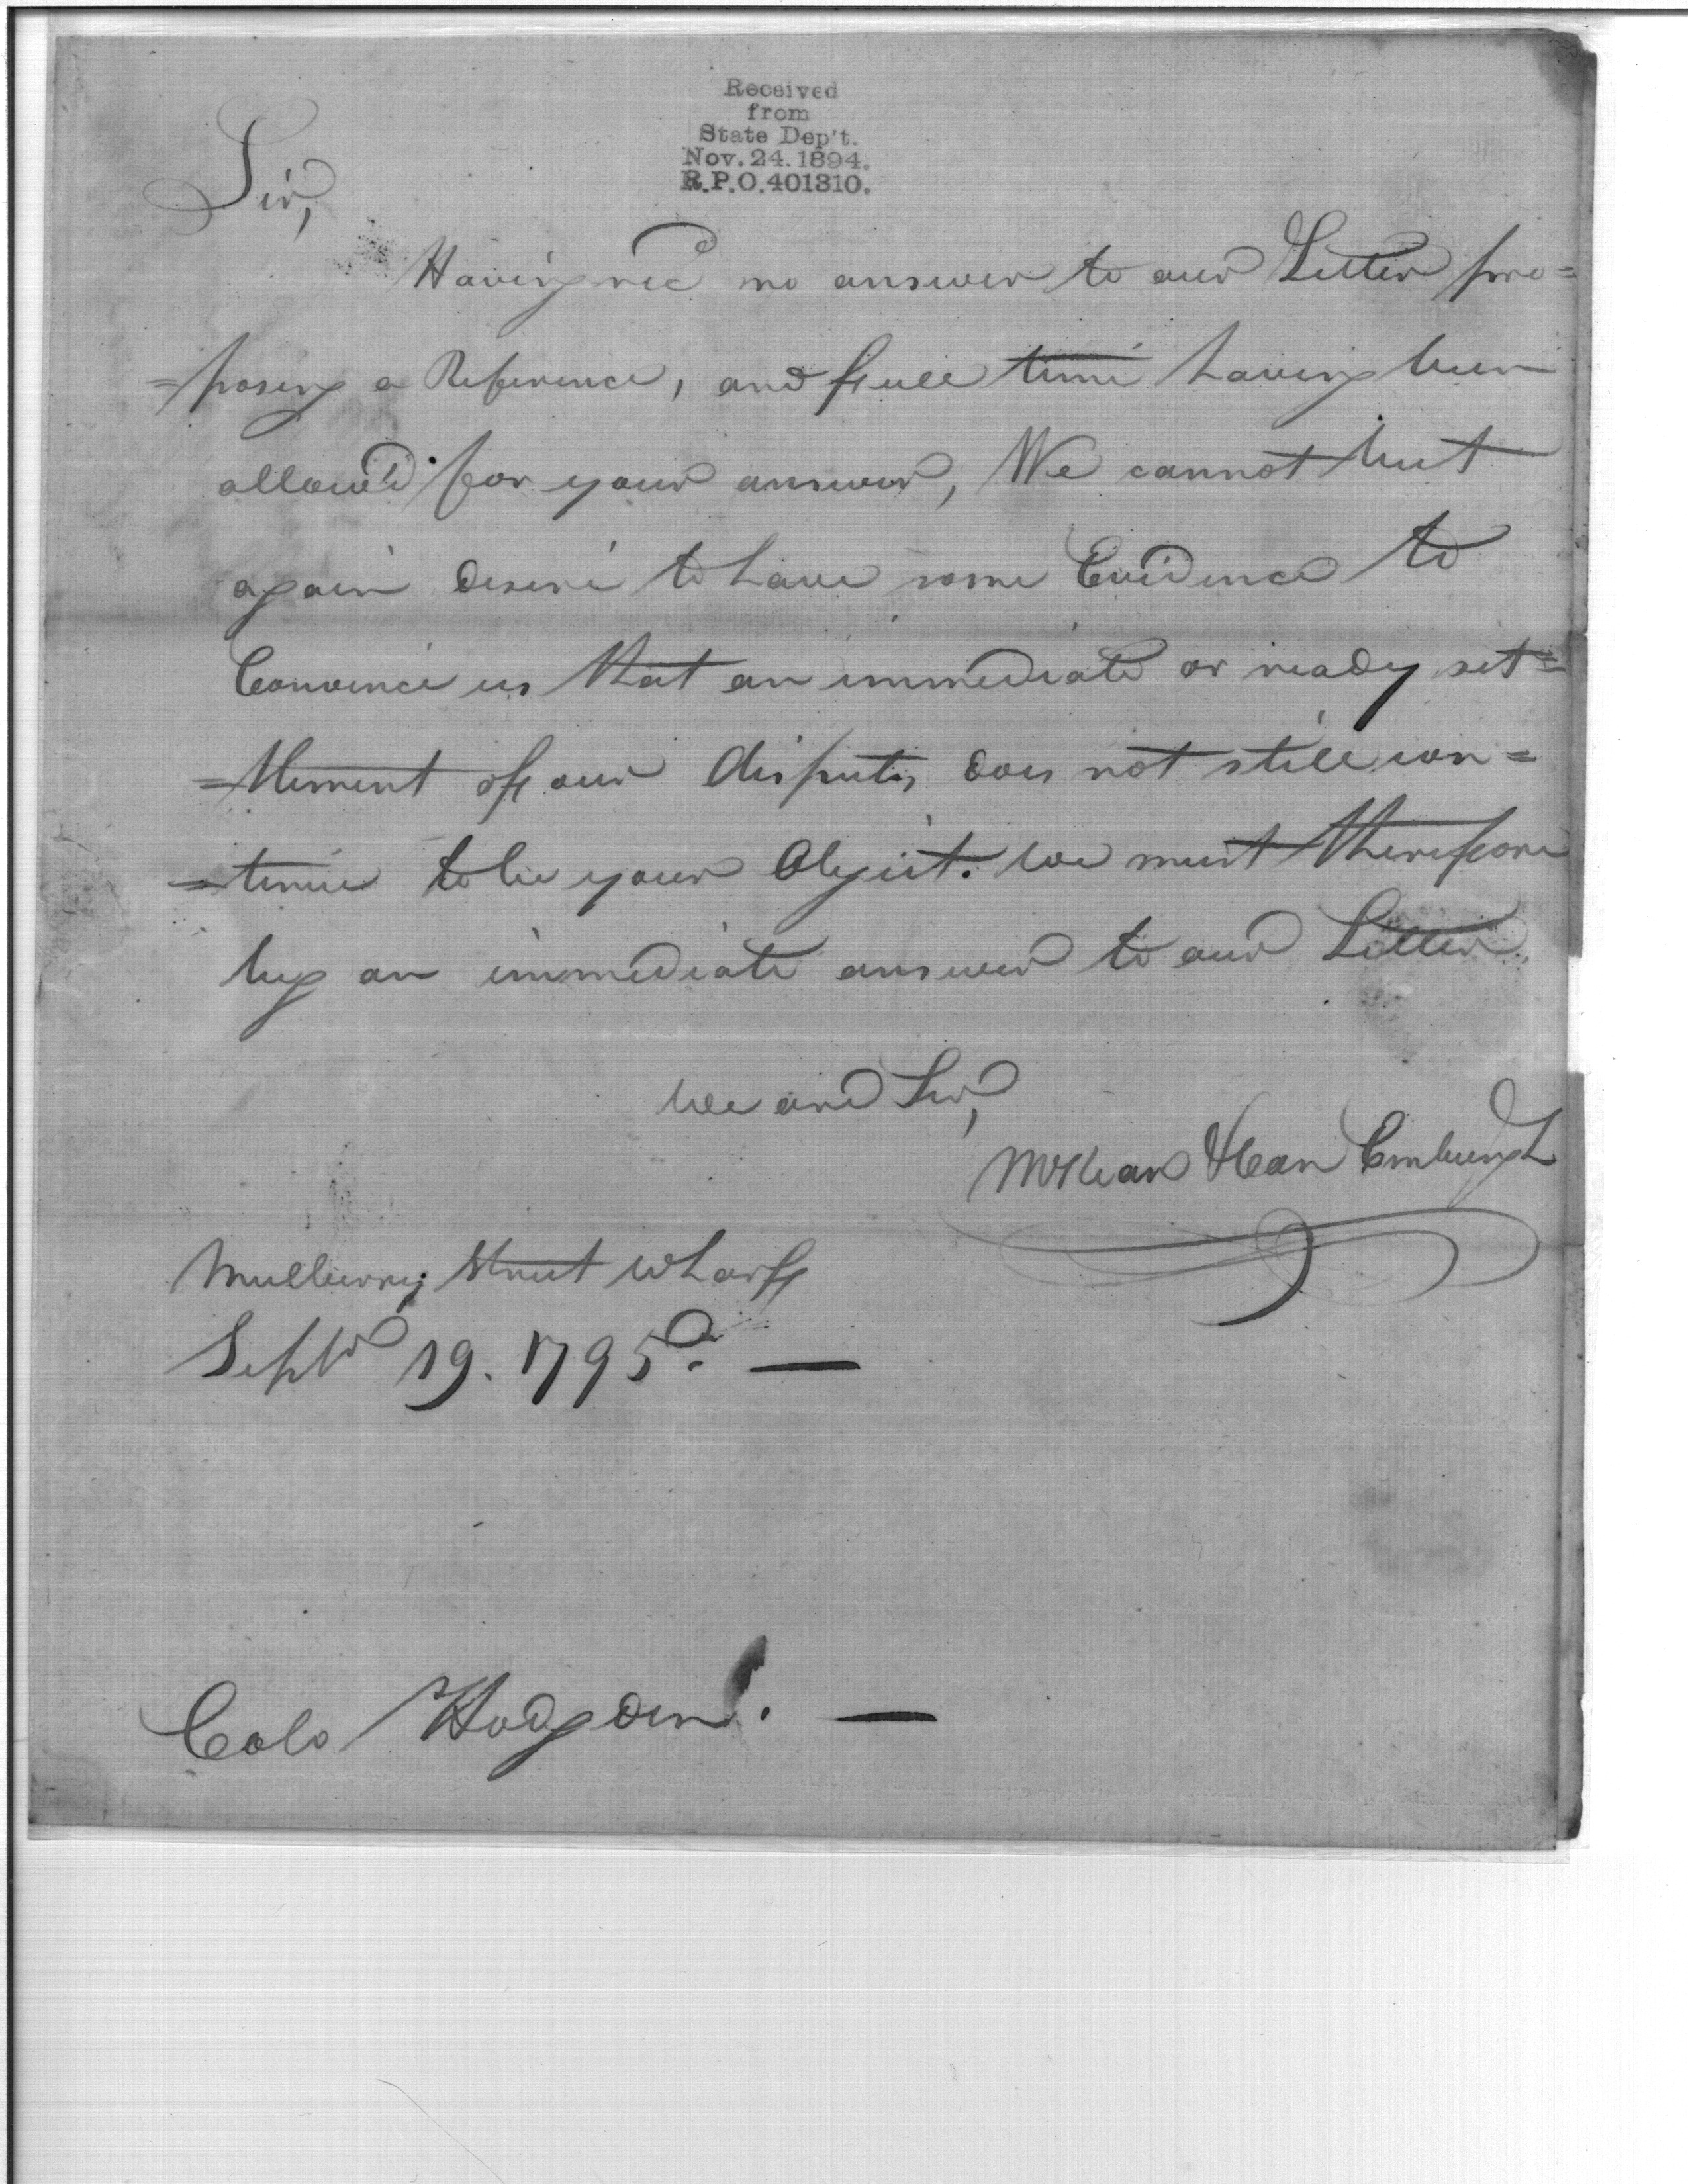 Received
from
State Dep't.
Nov. 24. 1894.
R.P.O. 401310.
Sir,
Having recd no answer to our Letter pro=
=posing a Reference, and full time having been
allow'd for your answer, We cannot but
again desire to have some Evidence to
Convince us that an immediate or ready set=
=tlement of our disputes does not still con=
=tinue to be your Object. We must therefore
beg an immediate answer to our Letter.
We are Sir,
McKean & Van Emburgh
Mulberry Street Wharf
Septr 19. 1795. —
Colo Hodgdon. —